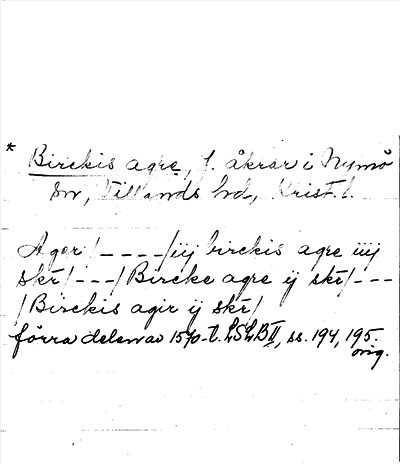 * Birckis agre, f. åkrar i Nymö
sn, Villands hd, Krist. l.
Ager /----/iij birckis agre iiij
skr/---/Bircke agre ij skr/---
/Birckis agir ij skr/
förra delen av 1570-t. LSLB II, ss. 194, 195.
orig.